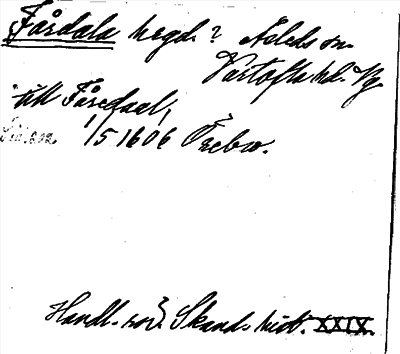 Fårdala hegd? Åsleds sn.
Vartofta hd. Vg.
till Fåredaal,
1/5 1606 Örebro.
Handl. rör. Skand. hist. XXIX.